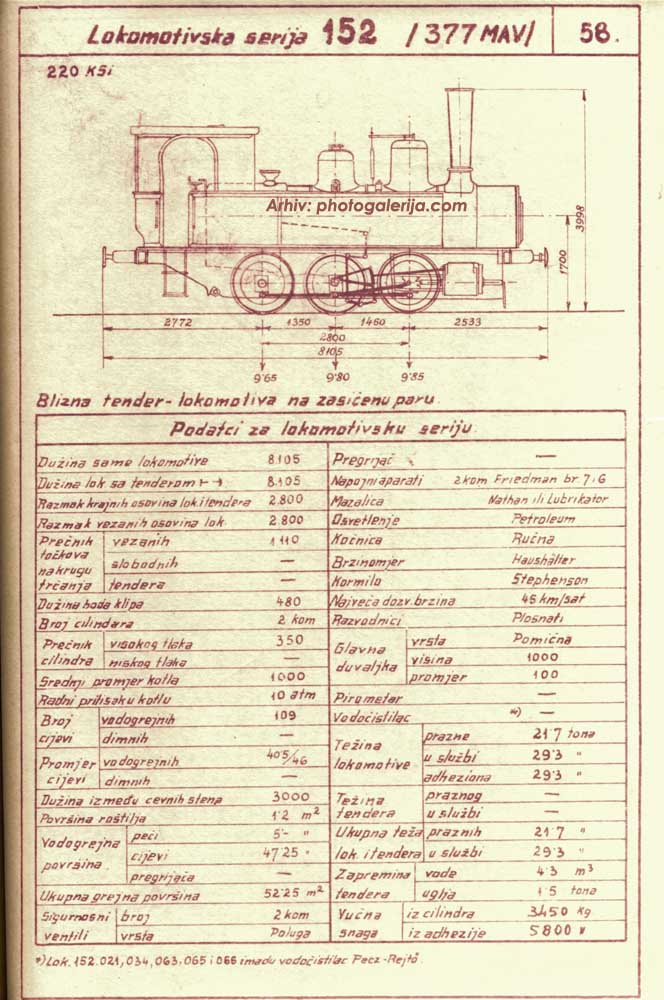 Lokomotivska serija 152 /377 MAV/ 58.
220 KSi
Arhiv: photogalerija.com
3998
1700
2772 1350 1460 2533
2800
8105
9·65 9·80 9·85
Blizna tender-lokomotiva na zasićenu paru.
Podatci za lokomotivsku seriju
Dužina same lokomotive 8.105
Dužina lok. sa tenderom ⊢→ 8.105
Razmak krajnih osovina lok.i tendera 2.800
Razmak vezanih osovina lok. 2.800
Prečnik točkova na krugu trčanja vezanih 1110
slobodnih —
tendera —
Dužina hoda klipa 480
Broj cilindara 2 kom
Prečnik cilindra visokog tlaka 350
niskog tlaka —
Srednji promjer kotla 1000
Radni pritisak u kotlu 10 atm
Broj cijevi vodogrejnih 109
dimnih —
Promjer cijevi vodogrejnih 40·5/46
dimnih —
Dužina između cevnih stena 3000
Površina roštilja 1·2 m²
Vodogrejna površina peći 5·- "
cijevi 47·25 "
pregrijača —
Ukupna grejna površina 52·25 m²
Sigurnosni ventili broj 2 kom
vrsta Poluga
Pregrijač —
Napojni aparati 2 kom Friedman br. 7 i G
Mazalica Nathan ili Lubrikator
Osvetlenje Petroleum
Kočnica Ručna
Brzinomjer Haushälter
Kormilo Stephenson
Najveća dozv. brzina 45 km/sat
Razvodnici Plosnati
Glavna duvaljka vrsta Pomična
visina 1000
promjer 100
Pirometar —
Vodočistilac *) —
Težina lokomotive prazne 21·7 tona
u službi 29·3 "
adheziona 29·3 "
Težina tendera praznog —
u službi —
Ukupna teža lok. i tendera praznih 21·7 "
u službi 29·3 "
Zapremina tendera vode 4·3 m³
uglja 1·5 tona
Vučna snaga iz cilindra 3450 kg
iz adhezije 5800 "
*) Lok. 152.021, 034, 063. 065 i 066 imadu vodočistilac Pecz-Rejtő.